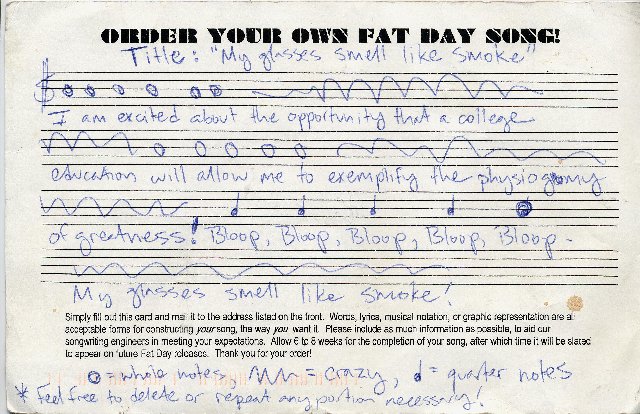 ORDER YOUR OWN FAT DAY SONG!
Title: "My glasses smell like smoke"
I am excited about the opportunity that a college
education will allow me to exemplify the physiognomy
of greatness! Bloop, Bloop, Bloop, Bloop, Bloop.
My glasses smell like smoke!
Simply fill out this card and mail it to the address listed on the front. Words, lyrics, musical notation, or graphic representation are all
acceptable forms for constructing your song, the way you want it. Please include as much information as possible, to aid our
songwriting engineers in meeting your expectations. Allow 6 to 8 weeks for the completion of your song, after which time it will be slated
to appear on future Fat Day releases. Thank you for your order!
= whole notes = crazy, = quarter notes
* Feel free to delete or repeat any portion necessary!